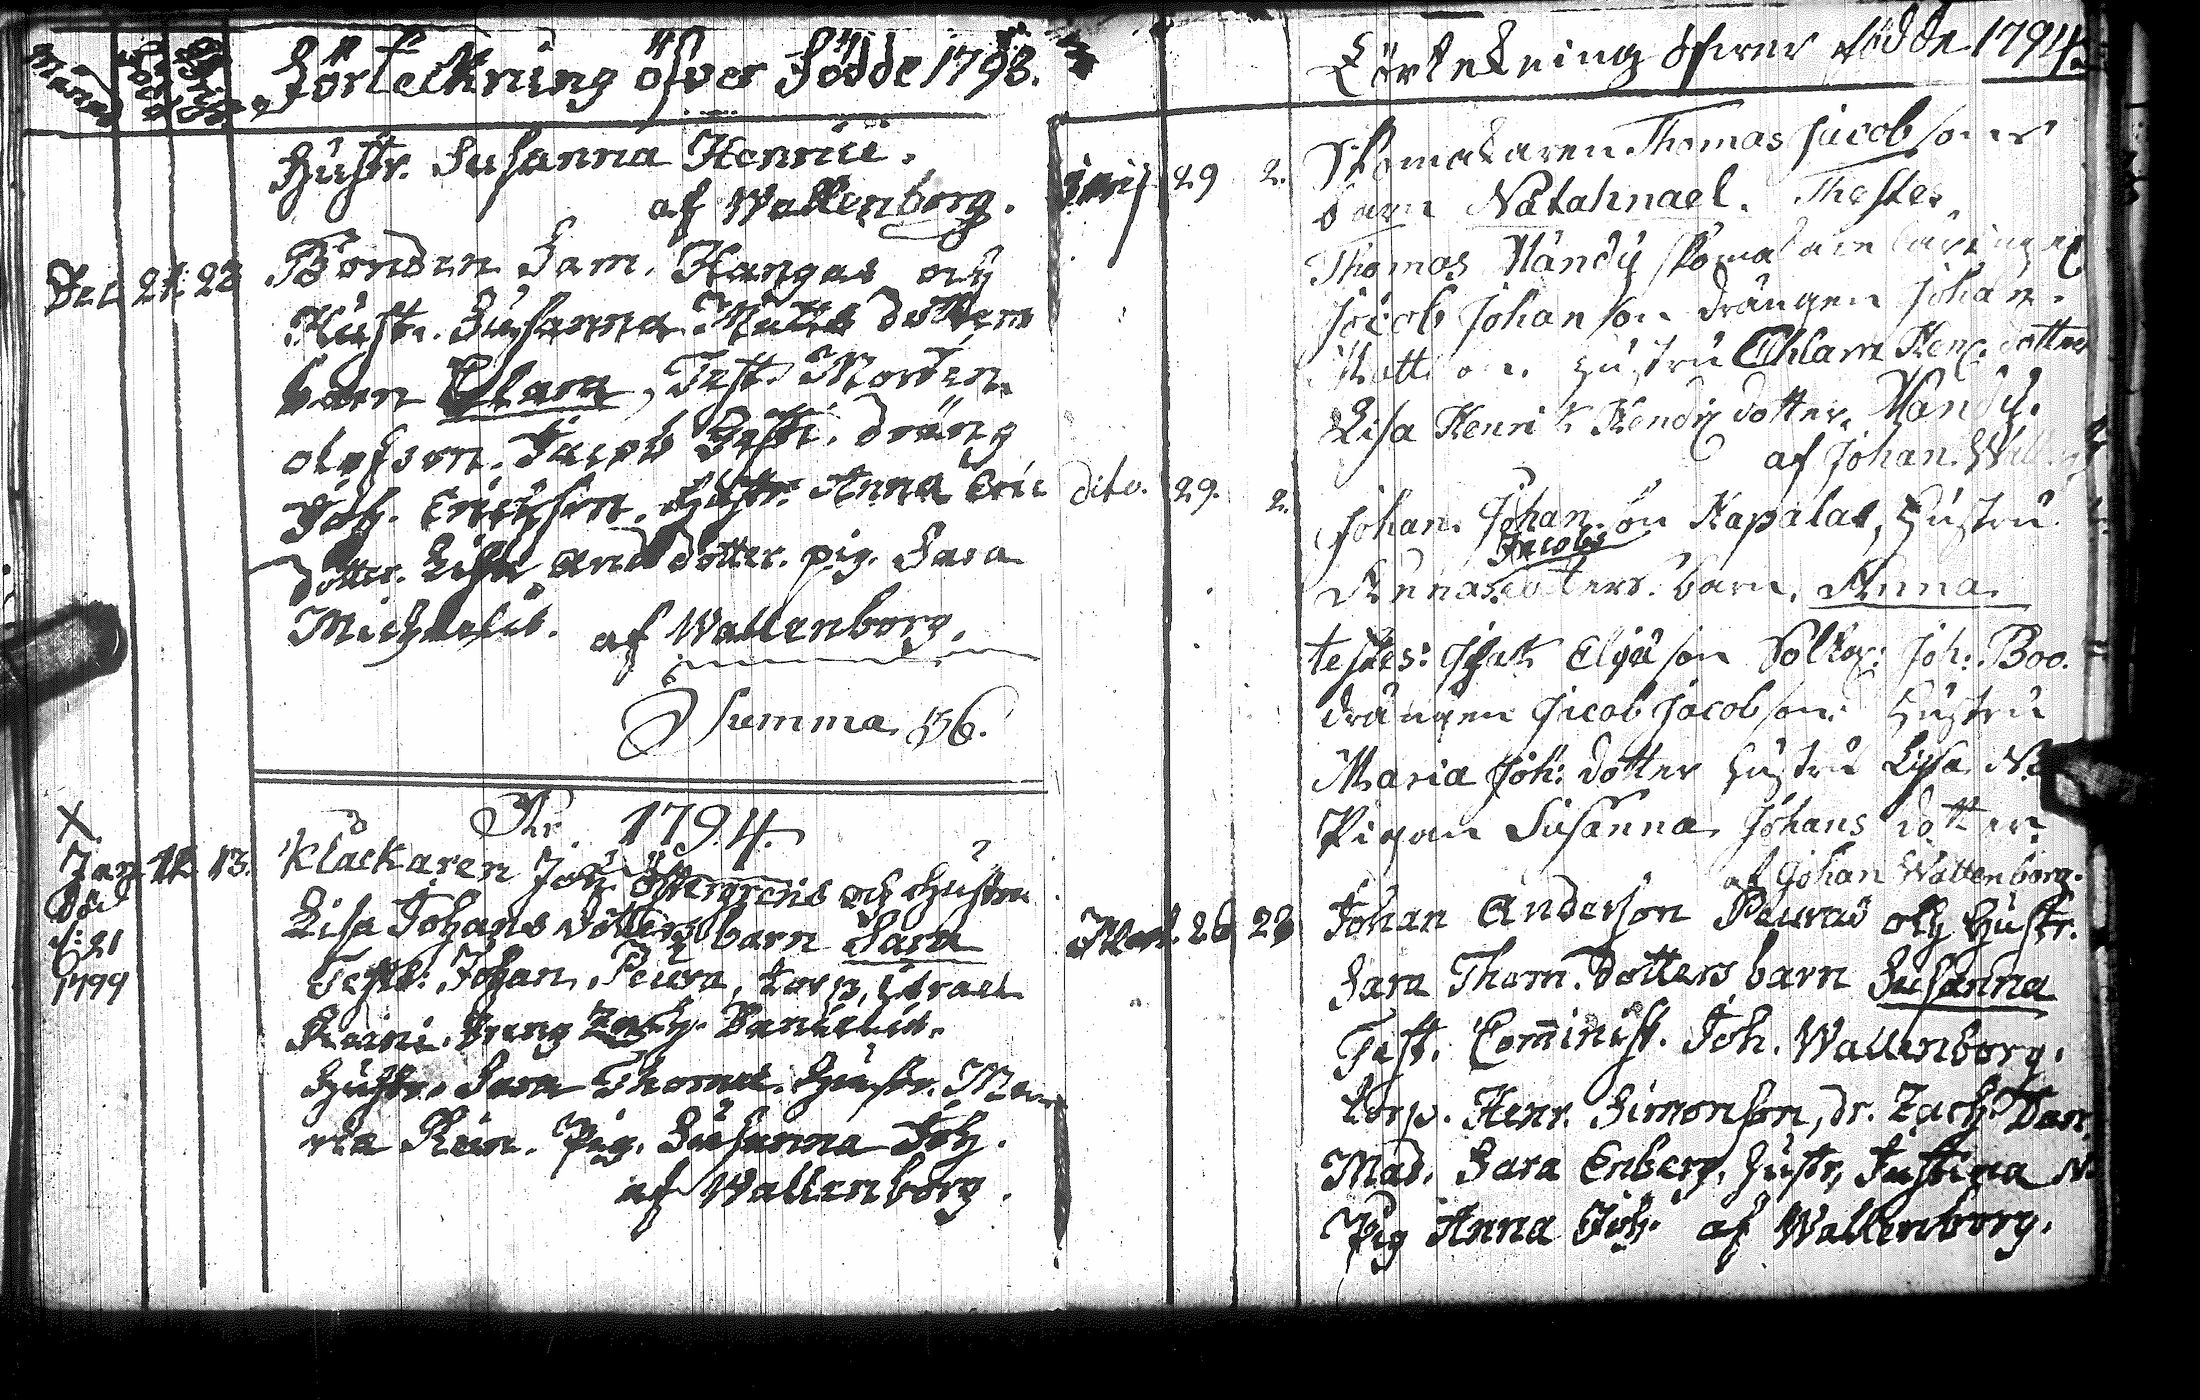 Månad Född Christn. Förteckning öfver Födde 1793.
Hustr. Susanna Henric.
af Wallenborg.
Dec 21. 23 Bonden Sam. Kangas och
Hustr. Susanna Matts dotters
barn Clara, Test. Morten
Olofson. Jacob dräng
Joh. Ericson. Hustr. Anna Eric
dotter. Lisa And dotter. pig. Sara
Michelsd. af Wallenborg.
Summa 56.
År 1794.
X
Jan 11. 13. Klåckaren Joh. Östergrens och Hustru
Död Lisa Johans dotters barn Sara
d: 21 Test: Johan Peura, torp. Israel
1799 Reini. Dreng Zach. Danielss.
Hustr. Sara Thomæ. Hustr. Ma
ria Rein. Pig. Susanna Joh.
af Wallenborg.
Förtekning öfwer födde 1794.
29 2. Skomakaren Thomas Jacobsons
barn Natahnael. Thestes
Thomas Mandü skomakare
Jacob Johanson drängen Johan
Matt son hustru Chlara Henr. dotter
Lisa Henrik dotter. Mandü.
af Johan. Wall
dito. 29. 2. Johan. Johan. son Kapalas, hustru
Jacobs
Annas dotters barn, Anna
testes: Isak Eliæson Joh: Boo.
drängen Jacob Jacobson hustru
Maria Joh: dotter hustru Lisa N
Pigan Susanna Johans dotter
af Johan Wallenborg.
Mart. 26 28 Johan Anderson Peuras och Hustr.
Sara Thom. dotters barn Susanna
Test. Com̅inist. Joh. Wallenborg.
torp. Henr. Simonson, dr. Zach Dan.
Mad. Sara Enberg, hustr, Justina N.
Pig Anna Joh. af Wallenborg.